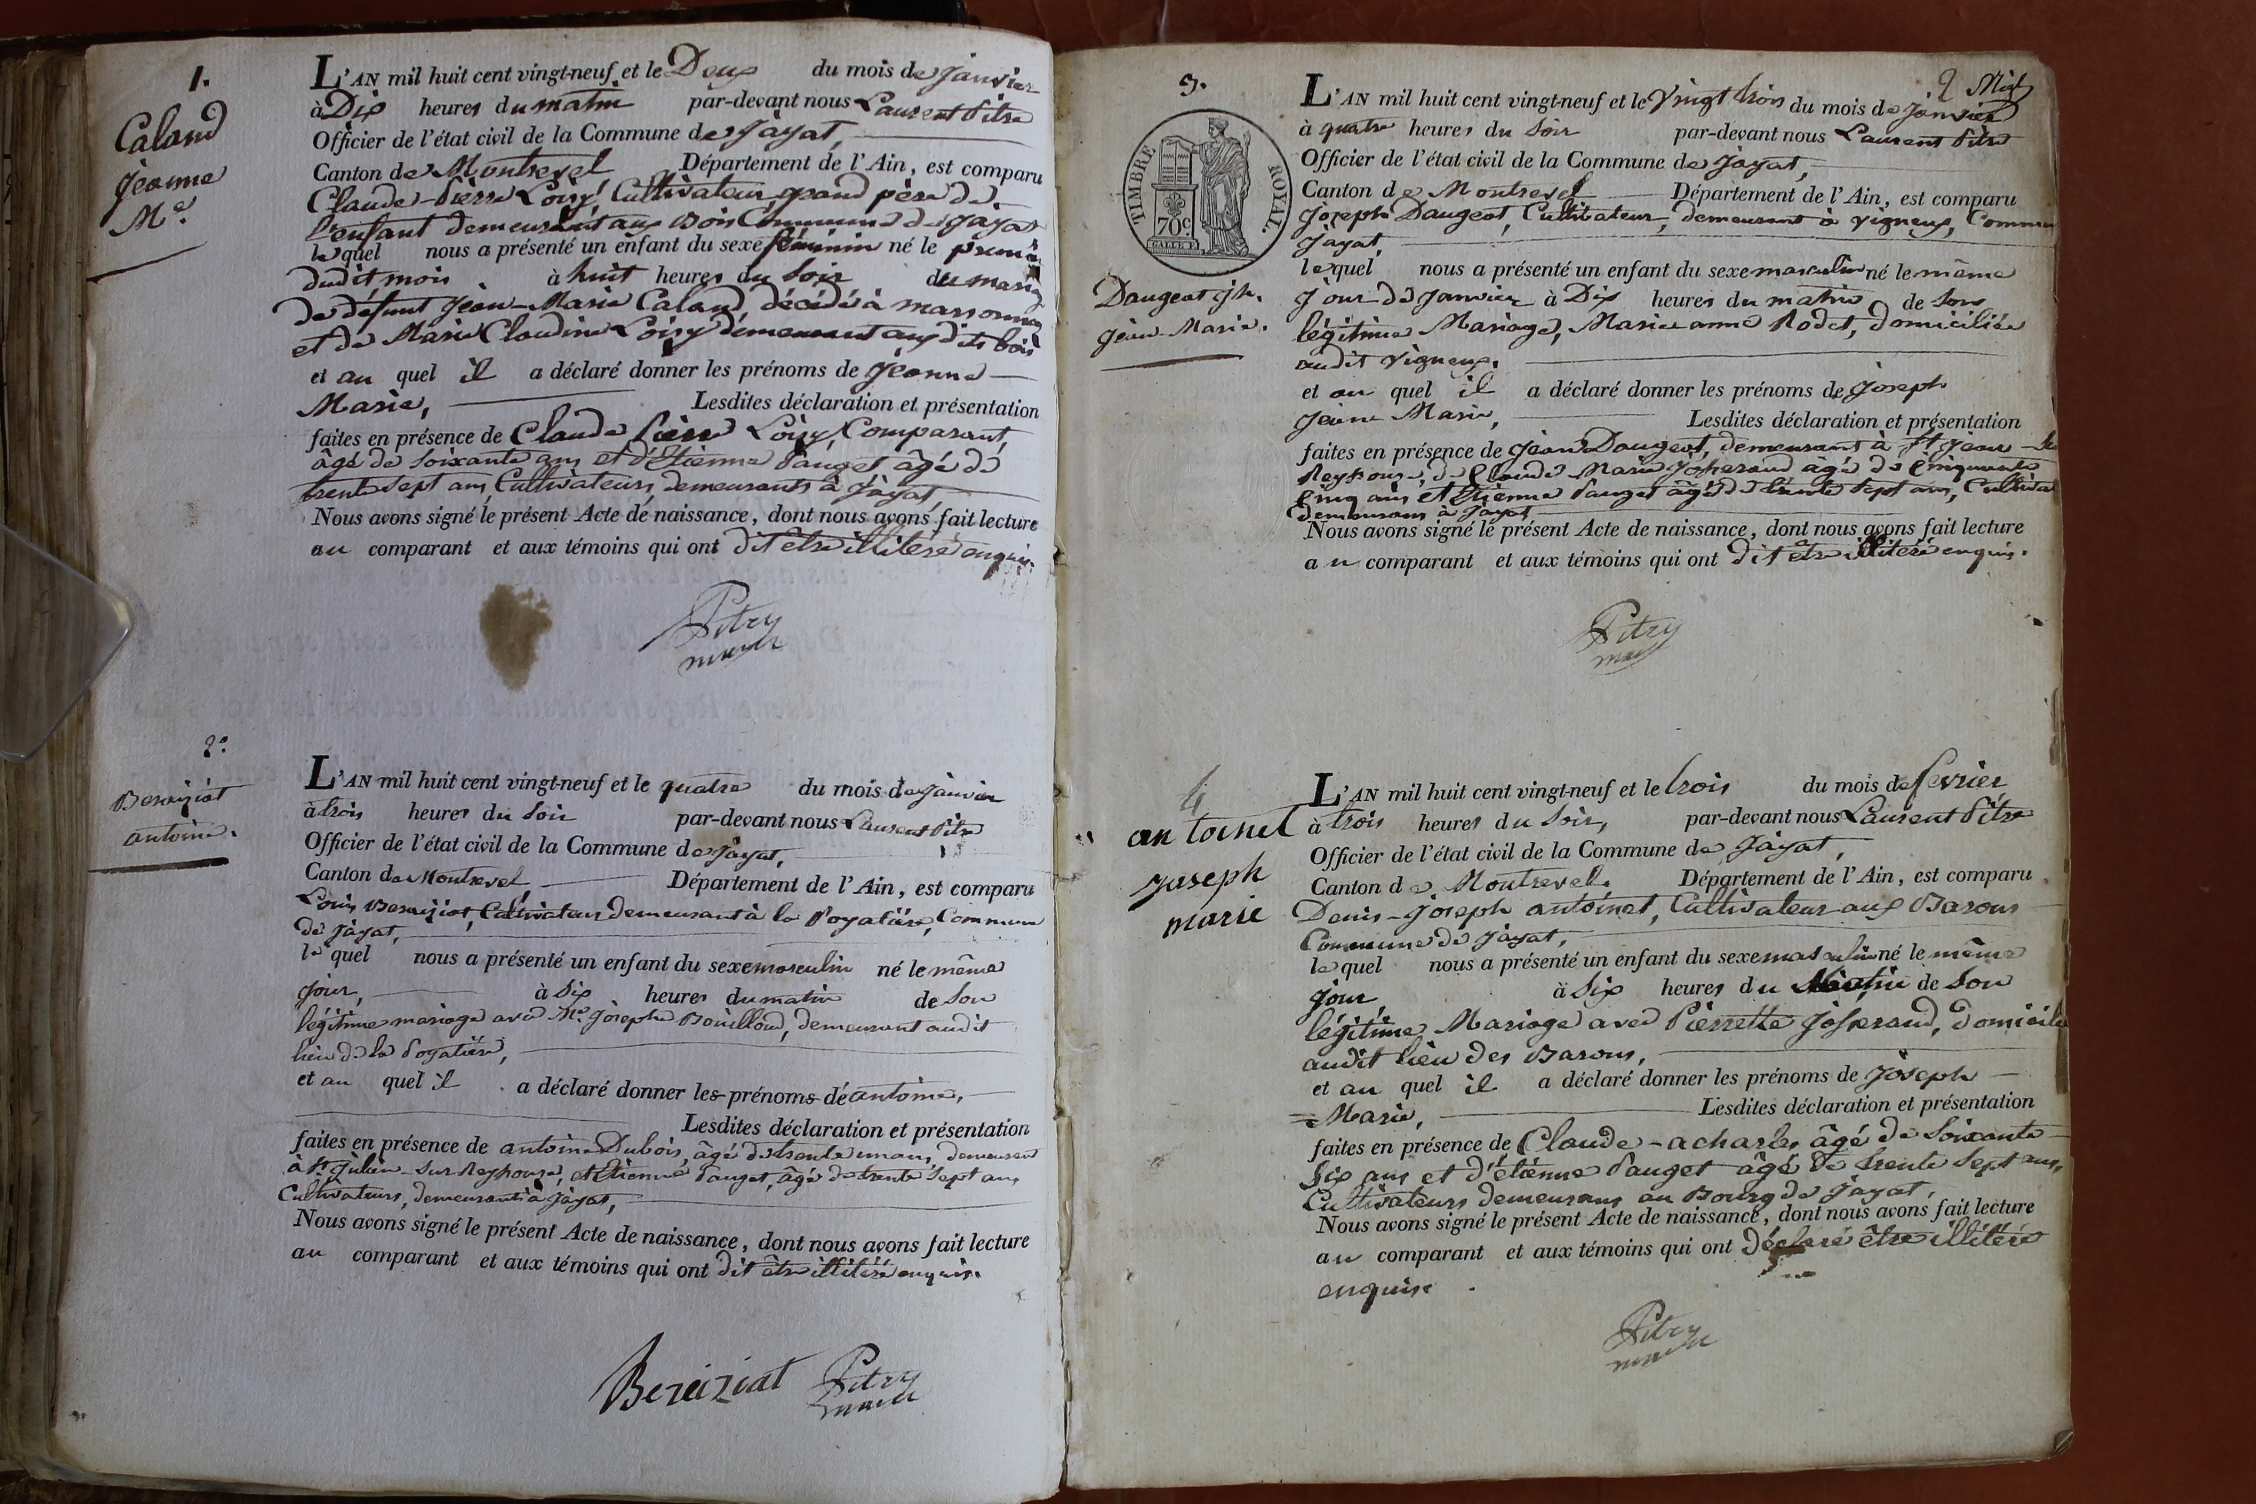 1.
Caland
Jéanne
Mie
L'AN mil huit cent vingt-neuf et le Deux du mois de Janvier
à Dix heures du matin par-devant nous Laurent Pitre
Officier de l'état civil de la Commune de Jayat,
Canton de Montrevel Département de l'Ain, est comparu
Claude-Pierre Loisy, Cultivateur, grand père de
l'enfant demeurant aux Bois Commune de Jayat
lequel nous a présenté un enfant du sexe féminin né le premier
dudit mois à huit heures du Soir du mariage
de défunt Jean-Marie Caland, décédé à marsonnas
et de Marie Claudine Loisy demeurant aux dits bois
et au quel il a déclaré donner les prénoms de Jéanne
Marie, Lesdites déclaration et présentation
faites en présence de Claude Pierre Loisy, Comparant,
âgé de Soixante ans et d'Etienne Pauget âgé de
trente Sept ans, Cultivateurs, demeurants à Jayat,
Nous avons signé le présent Acte de naissance, dont nous avons fait lecture
au comparant et aux témoins qui ont dit être illiteré enquis.
Pitry
maire
2.
Bereiziat
antoine.
L'AN mil huit cent vingt-neuf et le quatre du mois de Janvier
à trois heures du Soir par-devant nous Laurent Pitre
Officier de l'état civil de la Commune de Jayat,
Canton de Montrevel Département de l'Ain, est comparu
Louis Bereiziat, Cultivateur demeurant à la Poyatière, Commune
de Jayat,
lequel nous a présenté un enfant du sexe masculin né le même
jour, à Six heures du matin de Son
légitime mariage avec Me. Josephe Bouilloud, demeurant audit
lieu de la Poyatière,
et au quel il a déclaré donner les prénoms de antoine,
Lesdites déclaration et présentation
faites en présence de antoine Dubois, âgé de trente un ans, demeurant
à St. Julien-Sur-Reyssouze, et Etienne Pauget, âgé de trente Sept ans
Cultivateurs, demeurant à Jayat,
Nous avons signé le présent Acte de naissance, dont nous avons fait lecture
au comparant et aux témoins qui ont dit être illitéré enquis.
Bereiziat Pitry
maire
3.
2
TIMBRE ROYAL.
70c
Daugeat Jh.
Jéan-Marie.
L'AN mil huit cent vingt-neuf et le Vingt trois du mois de Janvier
à quatre heures du Soir par-devant nous Laurent Pitre
Officier de l'état civil de la Commune de Jayat,
Canton de Montrevel Département de l'Ain, est comparu
Joseph Daugeat, Cultivateur, demeurant à Vigneux, Commune
Jayat,
lequel nous a présenté un enfant du sexe masculin né le même
Jour de Janvier à Dix heures du matin de Son
légitime Mariage, Marie anne Rodet, domiciliée
audit Vigneux.
et au quel il a déclaré donner les prénoms de Joseph
Jéan Marie, Lesdites déclaration et présentation
faites en présence de Jean Daugeat, demeurant à St. Jean-Sur
Reyssouze, de Claude Marie Josserand âgé de Cinquante
Cinq ans et Etienne Pauget âgé de trente Sept ans, Cultivat
demeurans à Jayat
Nous avons signé le présent Acte de naissance, dont nous avons fait lecture
au comparant et aux témoins qui ont dit être illitéré enquis.
Pitry
maire
4
antoinet
joseph
marie
L'AN mil huit cent vingt-neuf et le trois du mois de fevrier
à trois heures du Soir, par-devant nous Laurent Pitre
Officier de l'état civil de la Commune de Jayat,
Canton de Montrevel. Département de l'Ain, est comparu
Denis-Joseph antoinet, Cultivateur aux Barons
Commune de Jayat,
lequel nous a présenté un enfant du sexe masculin né le même
jour à Six heures du Matin de Son
légitime Mariage avec Pierrette Josserand, domicile
audit lieu des Barons,
et au quel il a déclaré donner les prénoms de Joseph
=Marie, Lesdites déclaration et présentation
faites en présence de Claude-acharles âgé de Soixante
Six ans et d'étienne Pauget âgé de trente Sept ans,
Cultivateurs demeurans au Bourg de Jayat,
Nous avons signé le présent Acte de naissance, dont nous avons fait lecture
au comparant et aux témoins qui ont déclaré être illitéré
enquis.
Pitry
maire